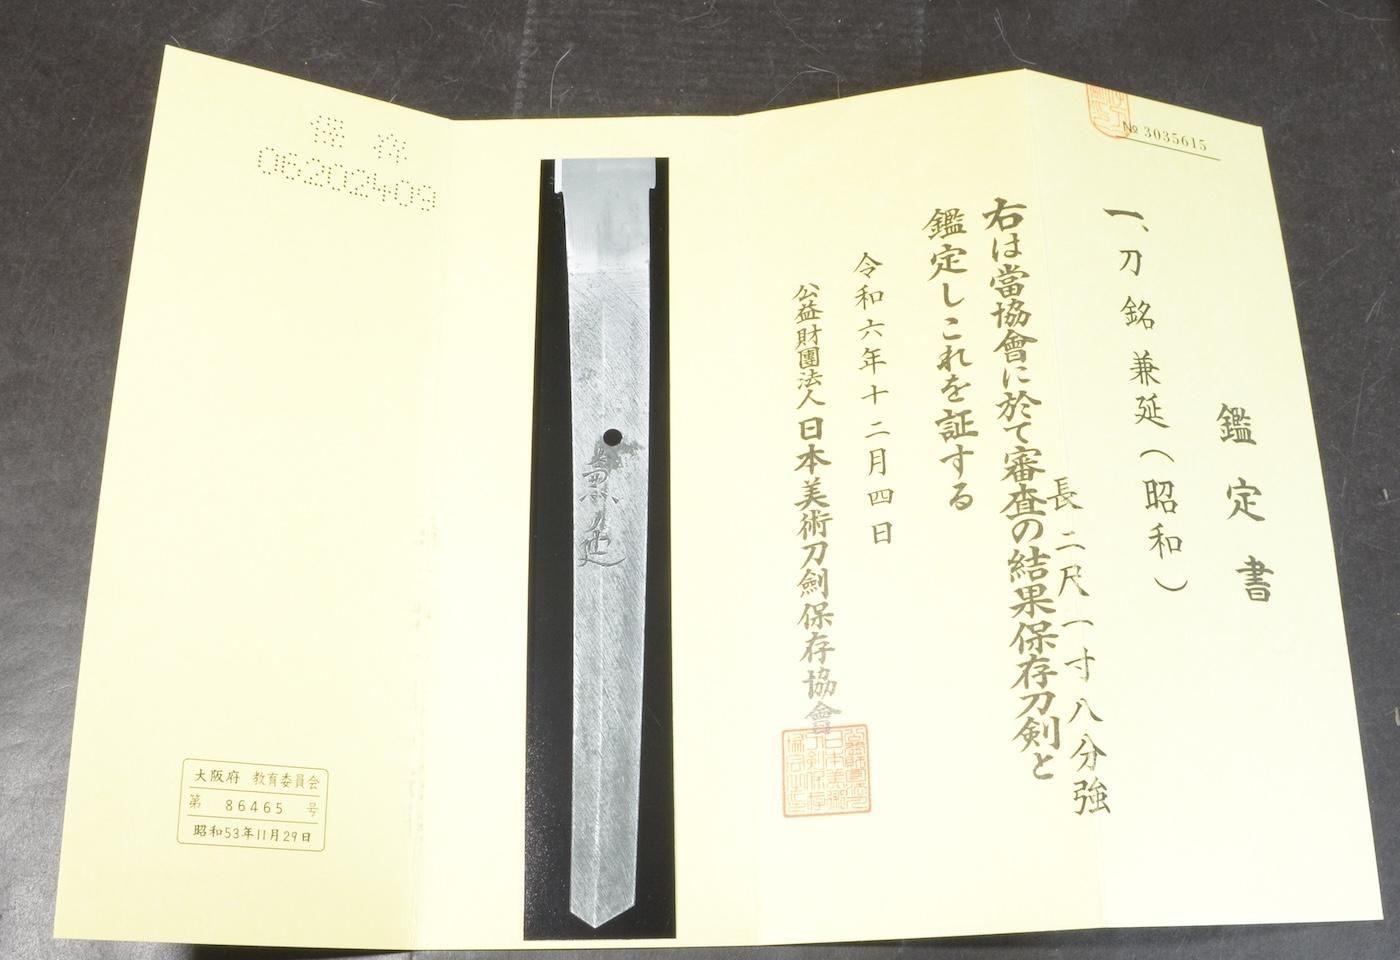 № 3035615
鑑定書
一、刀 銘 兼延（昭和）
長 二尺一寸八分強
右は當協會に於て審査の結果保存刀剣と
鑑定しこれを証する
令和六年十二月四日
公益財團法人 日本美術刀劍保存協會
兼延
保存
06202409
大阪府 教育委員会
第 86465 号
昭和53年11月29日